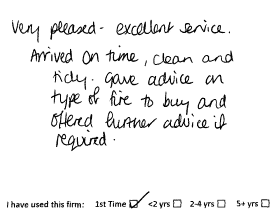 Very pleased - excellent service.
Arrived on time, clean and
tidy. Gave advice on
type of fire to buy and
offered further advice if
required.
I have used this firm: 1st Time ☑ <2 yrs ☐ 2-4 yrs ☐ 5+ yrs ☐